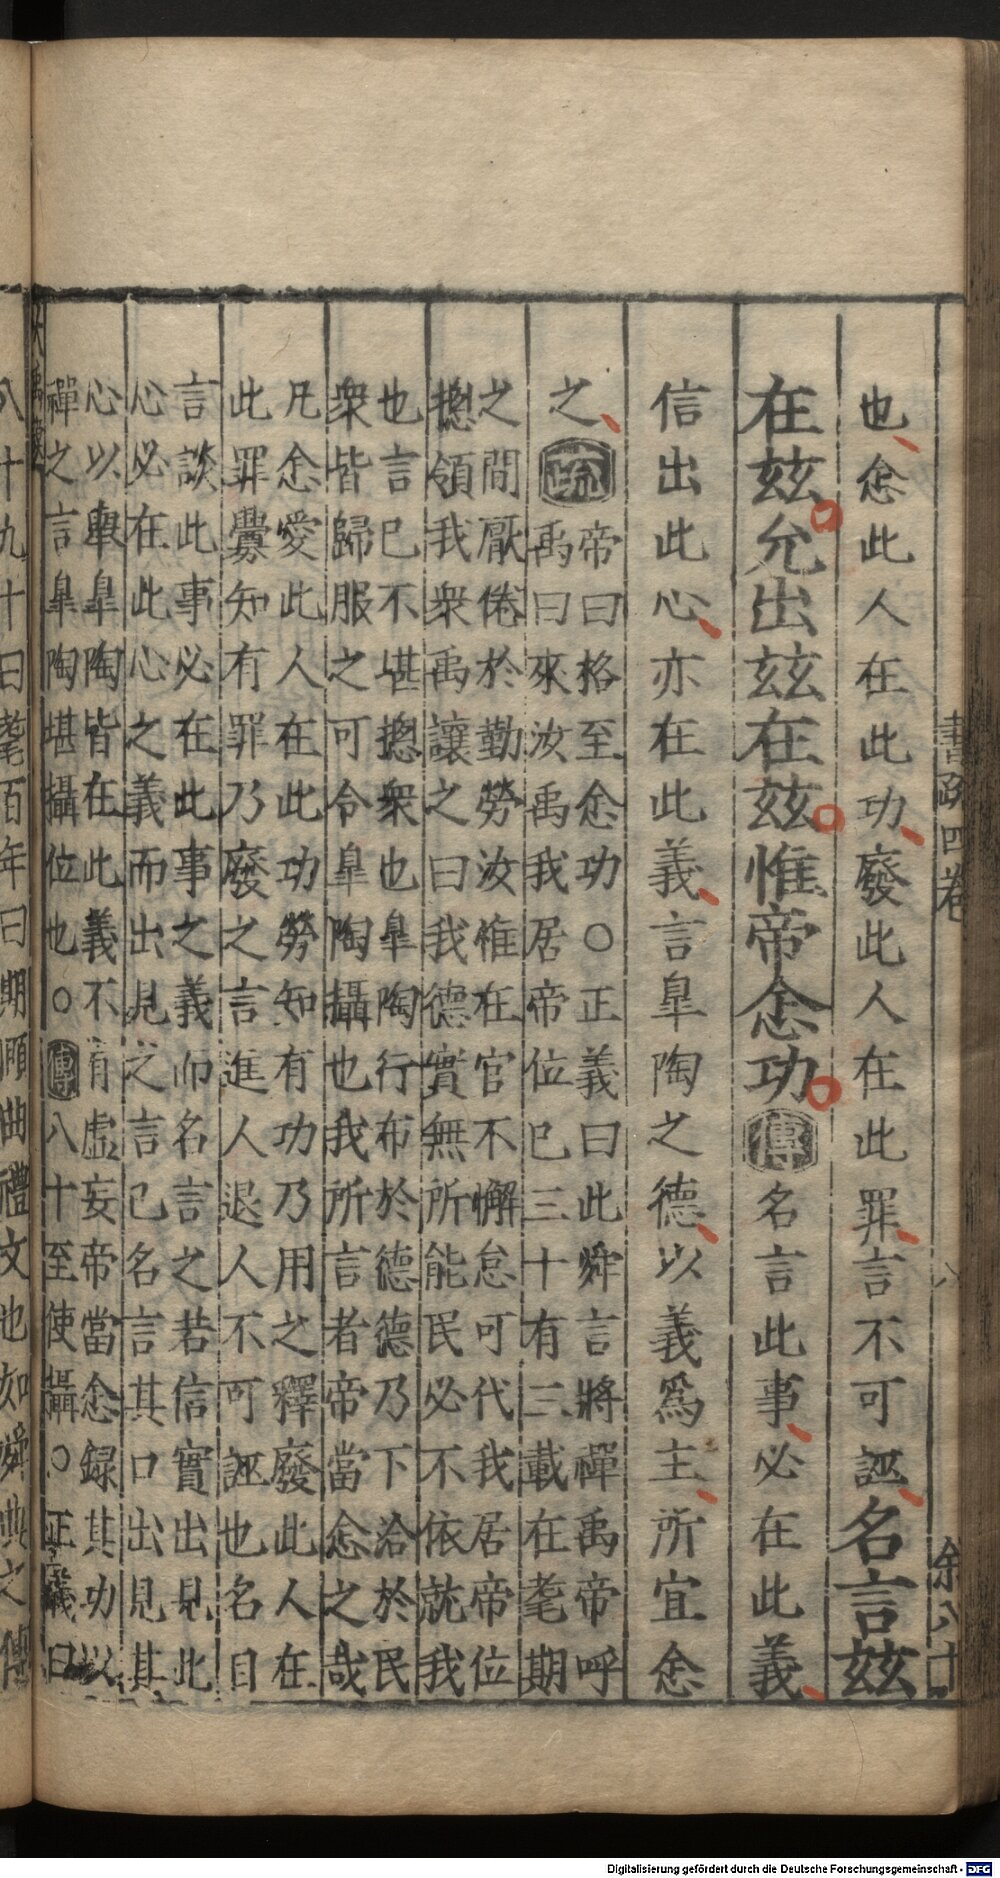 書疏四卷
八
余八十
也念此人在此功廢此人在此罪言不可誣名言茲
在茲允出茲在茲惟帝念功傳名言此事必在此義
信出此心亦在此義言臯陶之德以義爲主所宜念
之疏
帝曰格至念功○正義曰此舜言將禪禹帝呼
禹曰來汝禹我居帝位已三十有三載在耄期
之間厭倦於勤勞汝惟在官不懈怠可代我居帝位
摠領我衆禹讓之曰我德實無所能民必不依就我
也言已不堪摠衆也臯陶行布於德德乃下洽於民
衆皆歸服之可令臯陶攝也我所言者帝當念之哉
凡念愛此人在此功勞知有功乃用之釋廢此人在
此罪釁知有罪乃廢之言進人退人不可誣也名目
言談此事必在此事之義而名言之若信實出見此
心必在此心之義而出見之言已名言其口出見其
心以舉臯陶皆在此義不有虛妄帝當念録其功以
禪之言臯陶堪攝位也○傳八十至使攝○正義曰
大禹謨
八十九十曰耄百年曰期頤曲禮文也如舜典之傳
Digitalisierung gefördert durch die Deutsche Forschungsgemeinschaft - DFG